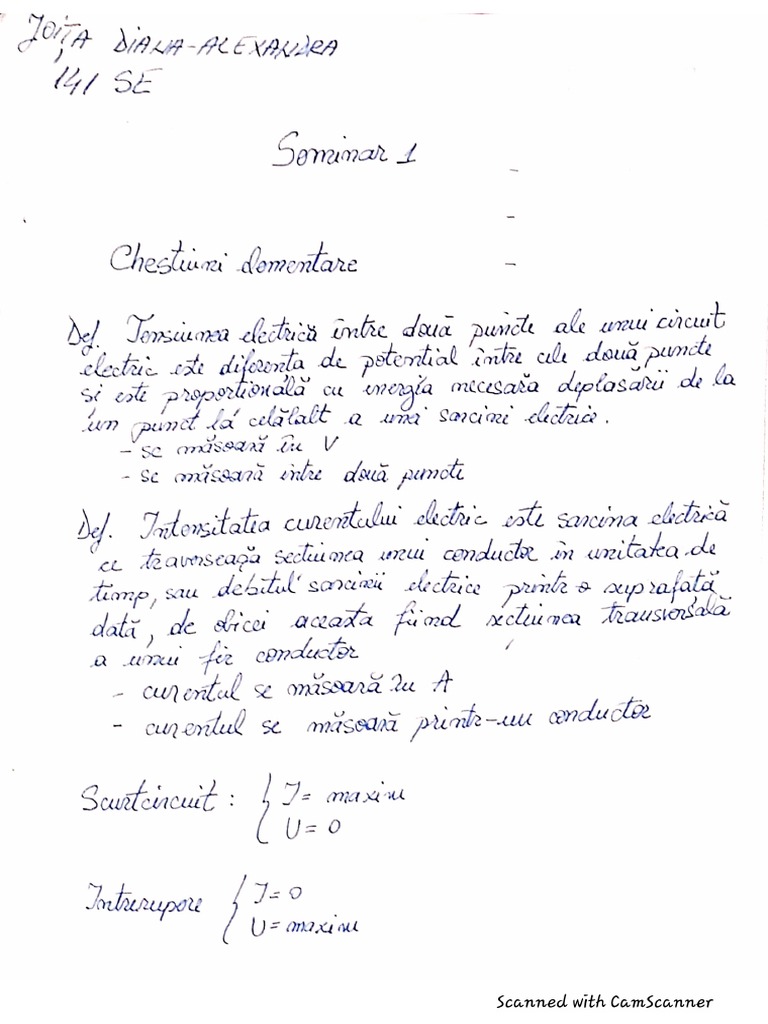 JOIȚA DIANA-ALEXANDRA
141 SE
Seminar 1
Chestiuni elementare
Def. Tensiunea electrică între două puncte ale unui circuit
electric este diferența de potențial între cele două puncte
și este proporțională cu energia necesară deplasării de la
un punct la celălalt a unei sarcini electrice.
- se măsoară în V
- se măsoară între două puncte
Def. Intensitatea curentului electric este sarcina electrică
ce traversează secțiunea unui conductor în unitatea de
timp, sau debitul sarcinii electrice printr-o suprafață
dată, de obicei aceasta fiind secțiunea transversală
a unui fir conductor
- curentul se măsoară în A
- curentul se măsoară printr-un conductor
Scurtcircuit: { I = maxim
U = 0
Întrerupere { I = 0
U = maxim
Scanned with CamScanner